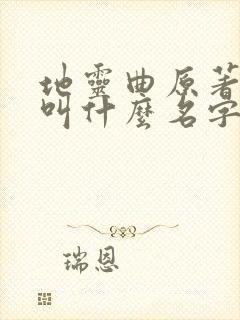 地靈曲原著
叫什麼名字
瑞恩